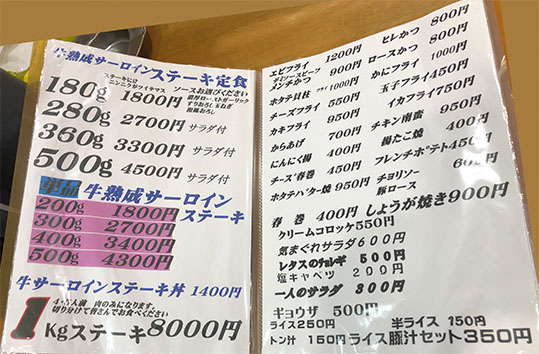 牛熟成サーロインステーキ定食
ステーキには
ニンニクがツイテマス
ソースお選びください
180g 1800円
濃厚ローストガーリック
すりおろし玉ねぎ
和風おろし
280g 2700円 サラダ付
360g 3300円 サラダ付
500g 4500円 サラダ付
単品 牛熟成サーロインステーキ
200g 1800円
300g 2700円
400g 3400円
500g 4300円
牛サーロインステーキ丼 1400円
4・5人前 肉のみになります。
切り分けて皆さんでお食べください
1Kgステーキ8000円
エビフライ 1200円
デミソースビーフ
メンチかつ 900円
ホタテ貝柱 フライ 1000円
チーズフライ 550円
カキフライ 950円
からあげ 700円
にんにく揚 400円
チーズ春巻 450円
ホタテバター焼 950円
ヒレかつ 800円
ロースかつ 800円
かにフライ 1000円
玉子フライ 450円
イカフライ 750円
チキン南蛮 950円
揚たこ焼 400円
フレンチポテト 450円
チョリソー
豚ロース
600円
春巻 400円
しょうが焼き900円
クリームコロッケ550円
気まぐれサラダ600円
レタスのチョレギ 500円
塩キャベツ 200円
一人のサラダ 300円
ギョウザ 500円
ライス250円
半ライス 150円
トン汁 150円
ライス豚汁セット350円